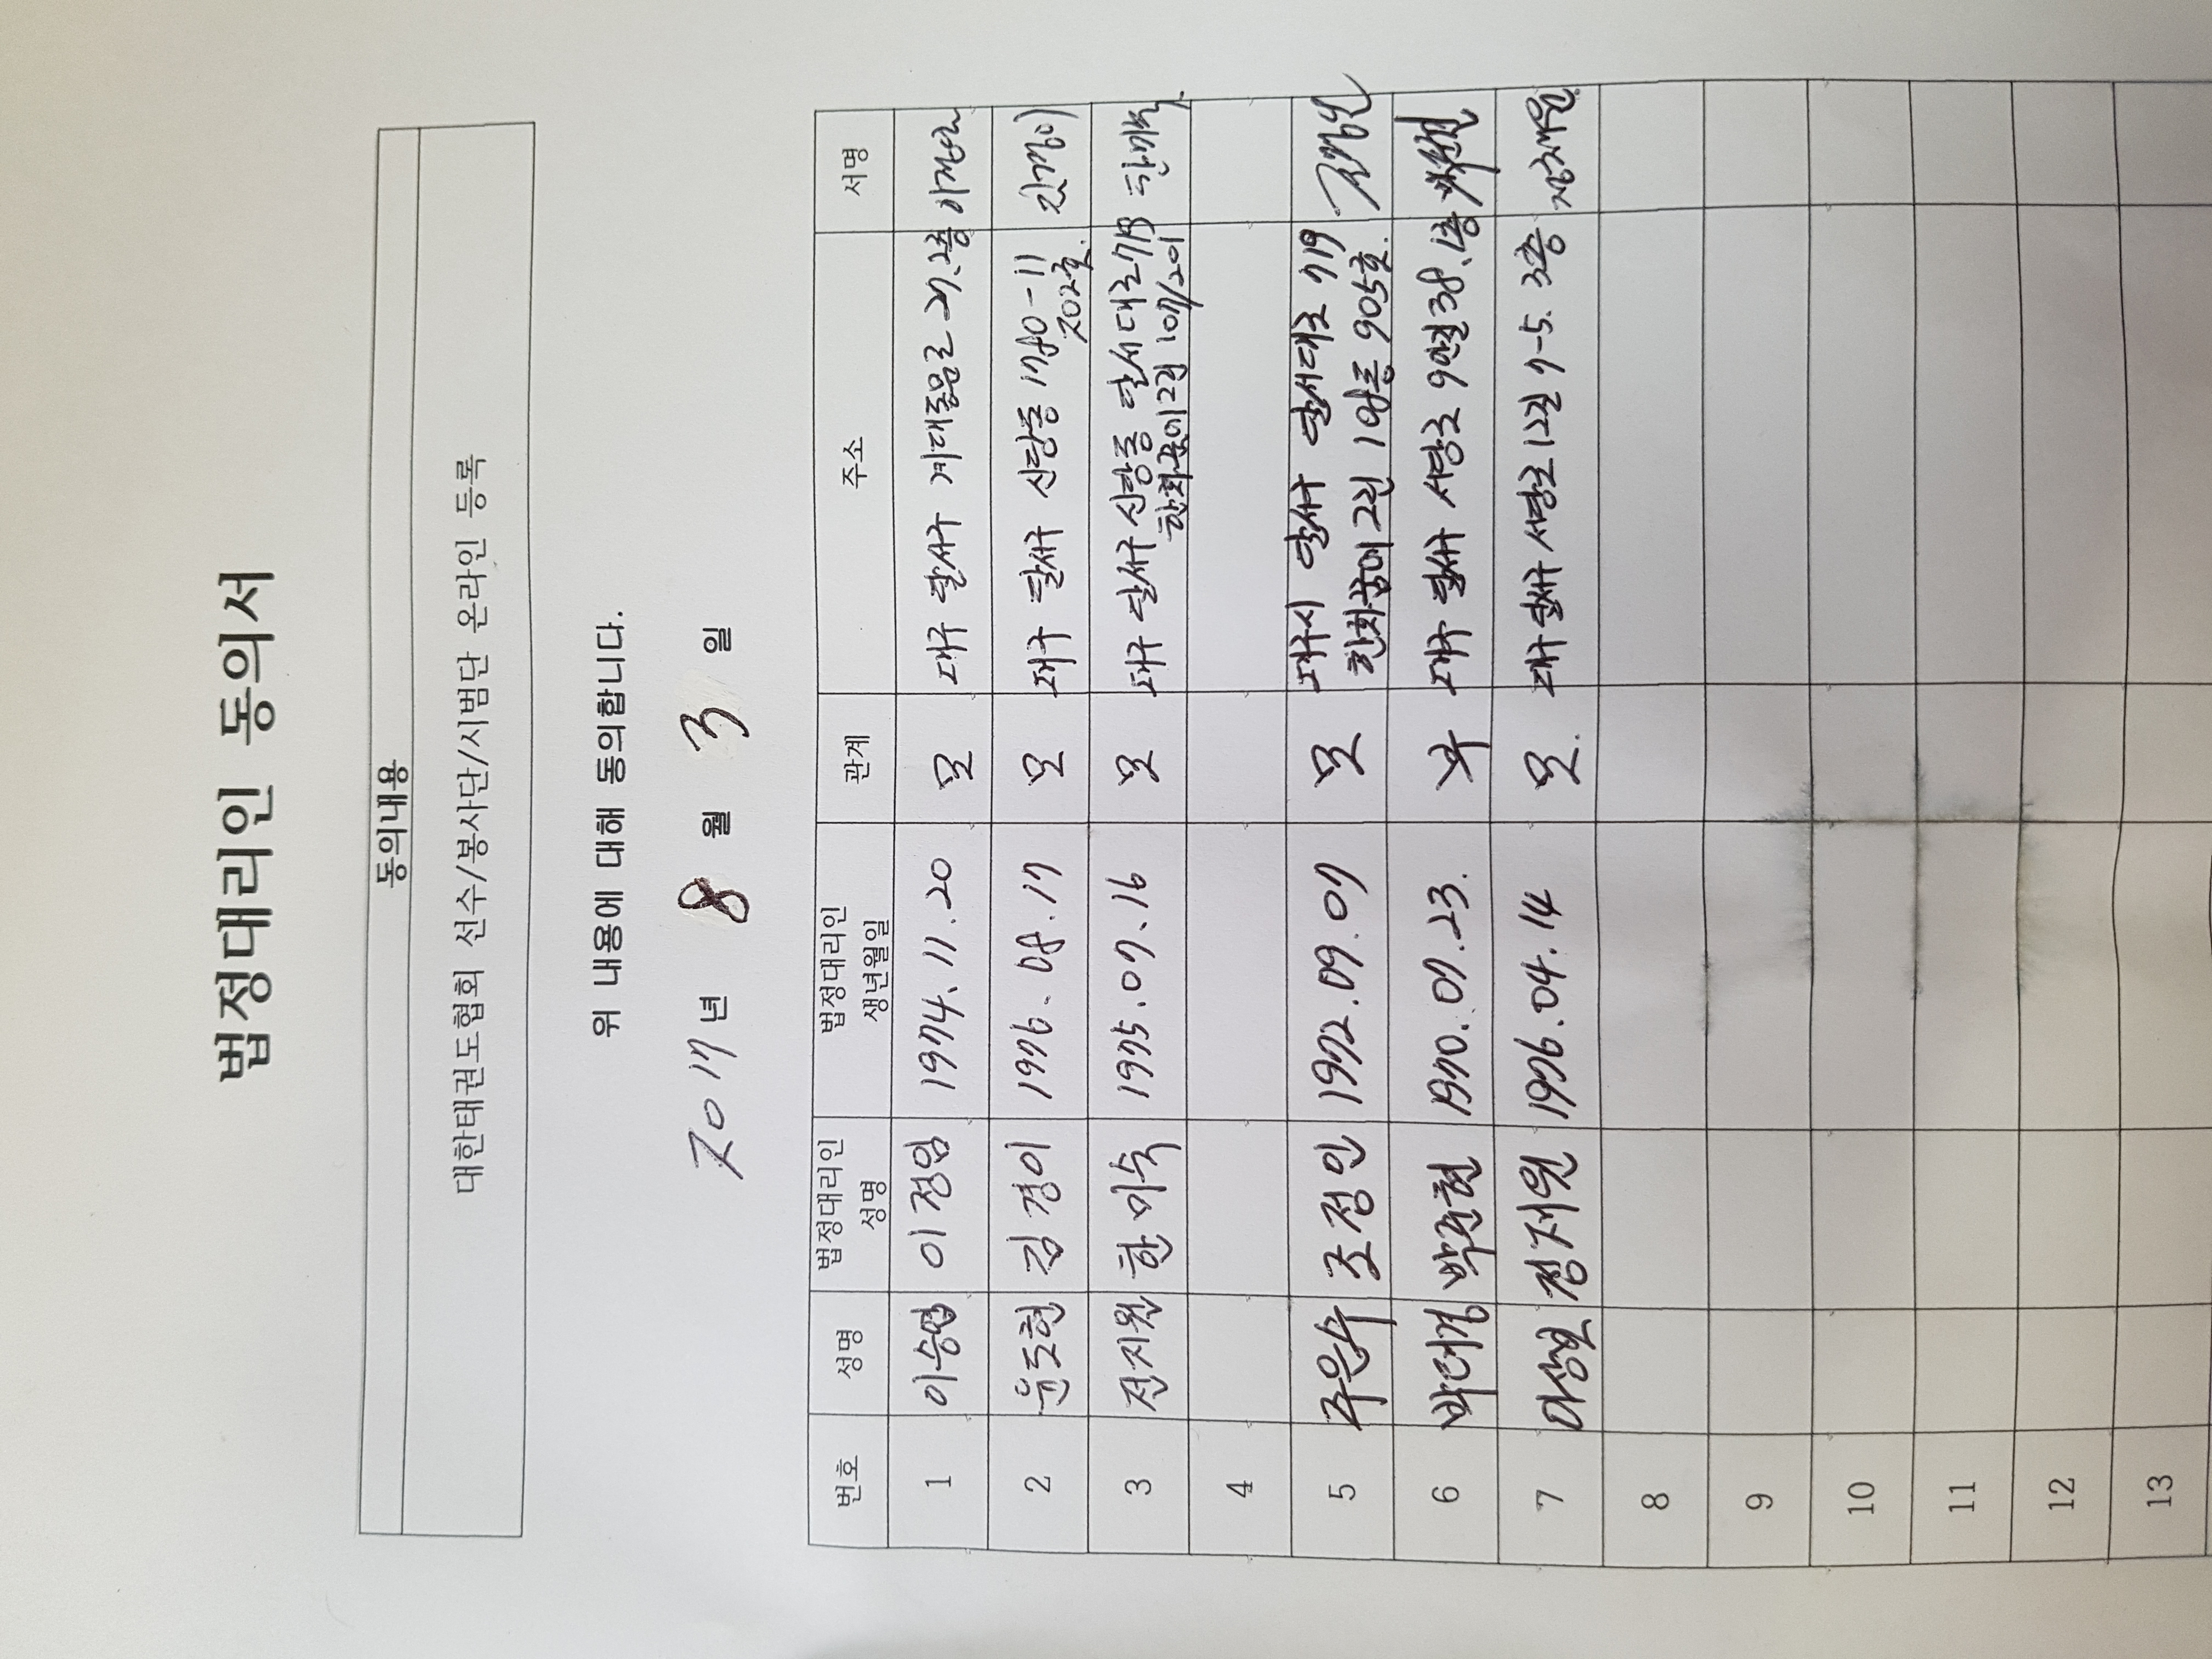 법정대리인 동의서
동의내용
대한태권도협회 선수/봉사단/시범단 온라인 등록
위 내용에 대해 동의합니다.
2017년 8 월 3 일
번호 성명 법정대리인 성명 법정대리인 생년월일 관계 주소 서명
1 이승엽 이정임 1974.11.20 모 대구 달서구 계대동문로 27.2층
2 윤도현 김경이 1976.08.17 모 대구 달서구 신당동 1780-11 202호. 김경이
3 전지원 한미숙 1975.07.16 모 대구 달서구 신당동 달서대로 719 한화꿈에2차 107/201 한미숙
4
5 주은수 조정인 1972.09.07 모 대구시 달서구 달서대로 719 한화꿈에 2차 905호. 조정인
6 박대경 박춘현 1970.07.23. 부 대구 달서구 서당로 9안길 38, 1층
7 이상헌 정재원 1976.04.14 모. 대구 달서구 서당로 12길 7-5. 3층 정재원
8
9
10
11
12
13